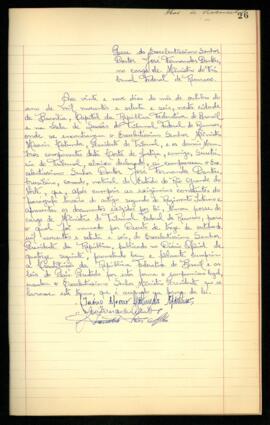 26
Posse do Excelentíssimo Senhor
Doutor José Fernandes Dantas,
no cargo de Ministro do Tri-
bunal Federal de Recursos.
Aos vinte e nove dias do mês de outubro do
ano de mil novecentos e setenta e seis, nesta cidade
de Brasília, Capital da República Federativa do Brasil
e na Sala de Sessões do Tribunal Federal de Recursos,
onde se encontravam o Excelentíssimo Senhor Ministro
Presidente do Tribunal, e os demais Mem-
bros componentes desta Corte de Justiça, comigo, Secretá-
rio do Tribunal, abaixo declarado, aí compareceu o Ex-
celentíssimo Senhor Doutor José Fernandes Dantas,
brasileiro, casado, natural do Estado do Rio Grande do
Norte, que, após cumprir as exigências constantes do
parágrafo do artigo segundo do Regimento Interno e
apresentar os documentos exigidos por lei, tomou posse do
cargo de Ministro do Tribunal Federal de Recursos, para
o qual foi nomeado por Decreto de
mil novecentos e setenta e seis, do Excelentíssimo Senhor
Presidente da República, publicado no Diário Oficial de
seguinte, prometendo bem e fielmente cumprir
a Constituição da República Federativa do Brasil e as
leis do País. Prestado por esta forma o compromisso legal,
mandou o Excelentíssimo Senhor Ministro Presidente que se
lavrasse este termo, que é assinado na forma da lei.